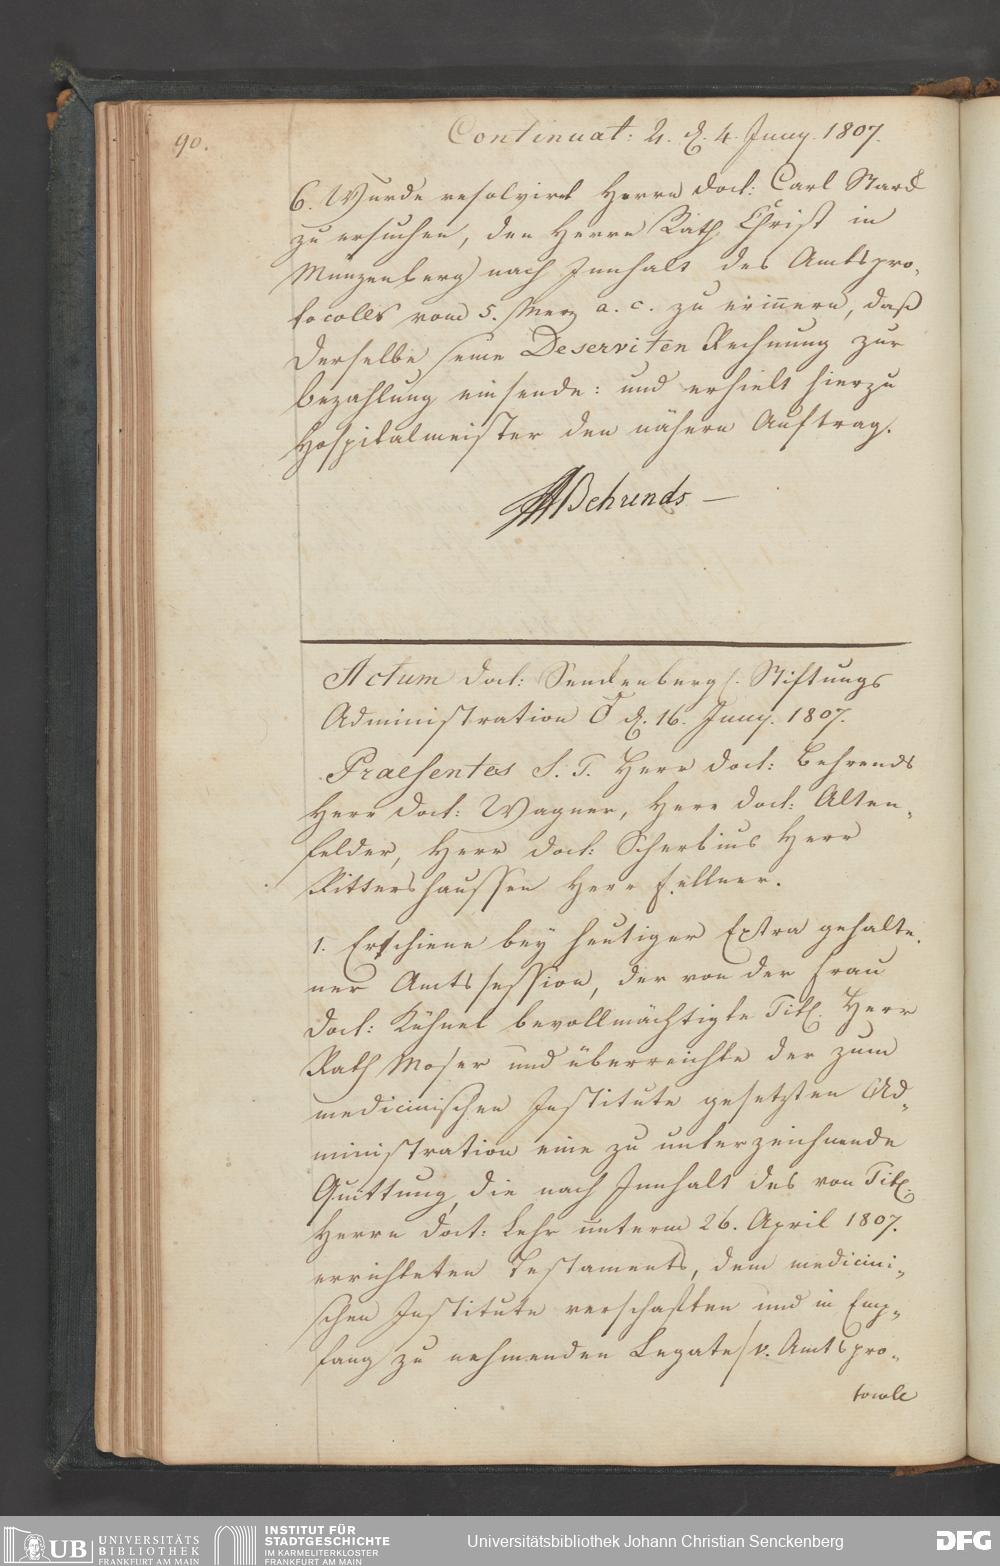 90.
Continuat: 4. d. 4. Juny. 1807.
6. Wurde resolvirt Herrn Doct: Carl Starck
zu ersuchen, den Herrn Rath Christ in
Münzenberg nach Innhalt des Amtspro„
tocolls vom 5. Merz a. c. zu erinnern, daß
Derselbe seine Deserviten Rechnung zur
Bezahlung einsende: und erhielt hierzu
Hospitalmeister den nähern Auftrag.
Behrends —
Actum Doct: Senckenberg. Stiftungs
Administration d. 16. Juny. 1807.
Praesentes S. T. Herr Doct: Behrends
Herr Doct: Wagner, Herr Doct: Alten„
felder, Herr Doct: Scherbius Herr
Rittershaussen Herr Fellner.
1. Erschiene bey heutiger Extra gehalte„
ner Amtssession, der von der Frau
Doct: Kühnel bevollmächtigte Titl. Herr
Rath Moser und überreichte der zum
medicinischen Institute gesetzten Ad„
ministration eine zu unterzeichnende
Quittung, die nach Innhalt des von Titl.
Herrn Doct: Lehr unterm 26. April 1807.
errichteten Testaments, dem medicini„
schen Institute verschafften und in Emp„
fang zu nehmenden Legate/v. Amtspro„
tocole
UB UNIVERSITÄTS
BIBLIOTHEK
FRANKFURT AM MAIN
INSTITUT FÜR
STADTGESCHICHTE
IM KARMELITERKLOSTER
FRANKFURT AM MAIN
Universitätsbibliothek Johann Christian Senckenberg
DFG